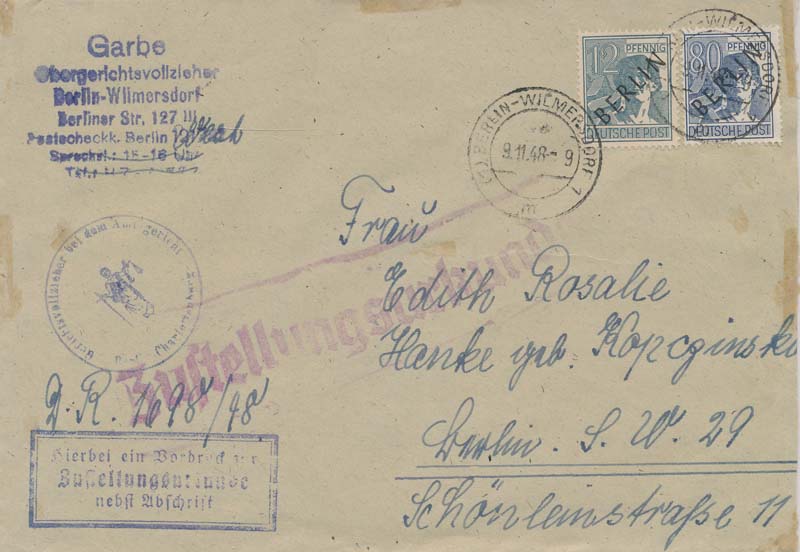 Garbe
Obergerichtsvollzieher
Berlin-Wilmersdorf
Berliner Str. 127 III
Postscheckk. Berlin
Sprechst.: 15-16 Uhr
Tel.:
12 PFENNIG
BERLIN
DEUTSCHE POST
80 PFENNIG
BERLIN
DEUTSCHE POST
(1) BERLIN-WILMERSDORF 1
9.11.48- 9
m
Gerichtsvollzieher bei dem Amtsgericht
Charlottenburg
Zustellungsurkund
Frau
Edith Rosalie
Hanke geb. Kopczinski
Berlin. S. W. 29
Schönleinstraße 11
D. R. 1698/48
Hierbei ein Vordruck zur
Zustellungsurkunde
nebst Abschrift